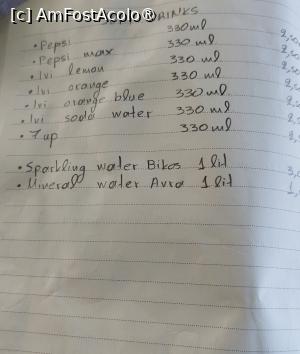 [c] AmFostAcolo®
DRINKS
• Pepsi 330 ml 2,50
• Pepsi max 330 ml 2,50
• Ivi lemon 330 ml 2,50
• Ivi orange 330 ml
• Ivi orange blue 330 ml
• Ivi soda water 330 ml
• 7up 330 ml
• Sparkling water Bikos 1 lit
• Mineral water Avra 1 lit